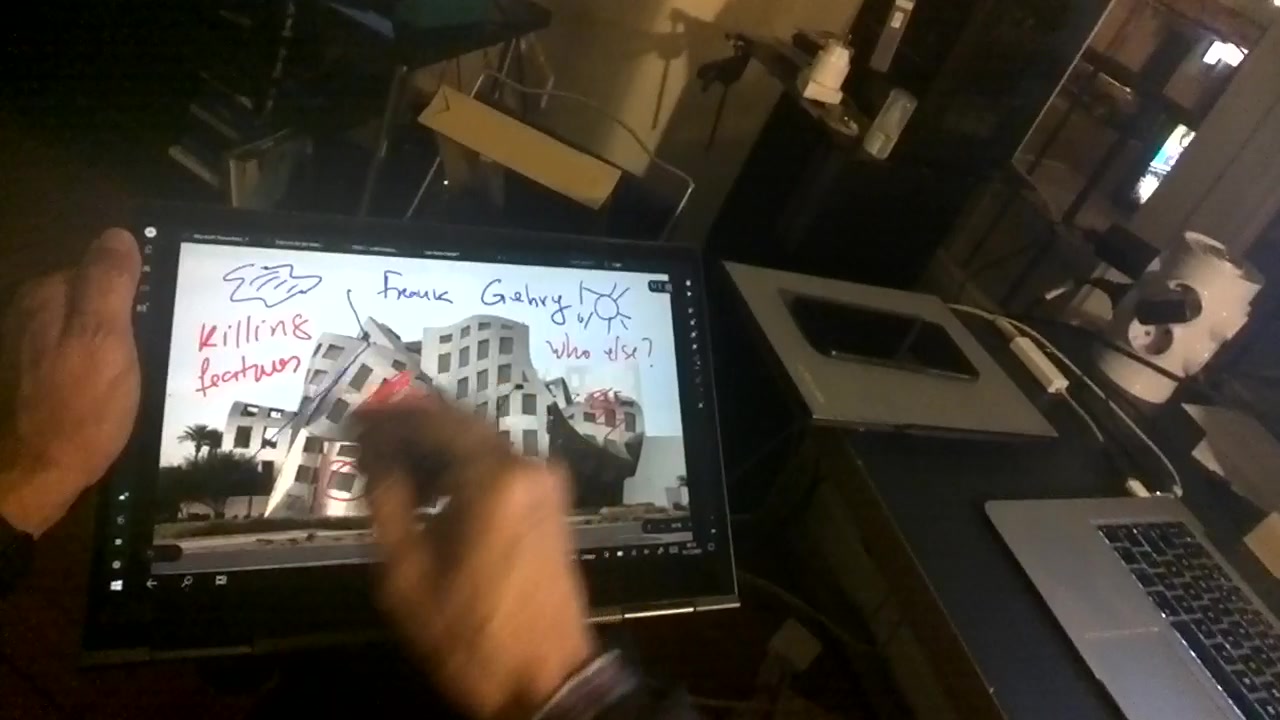 Frank Gehry
Killing
features
Who else?